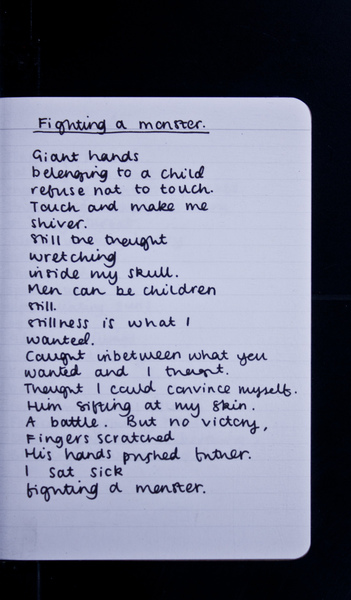 Fighting a monster.
Giant hands
belonging to a child
refuse not to touch.
Touch and make me
shiver.
Still the thought
wretching
inside my skull.
Men can be children
still.
Stillness is what I
wanted.
Caught inbetween what you
wanted and I thought.
Thought I could convince myself.
Him sifting at my skin.
A battle. But no victory,
Fingers scratched
His hands pushed further.
I sat sick
fighting a monster.